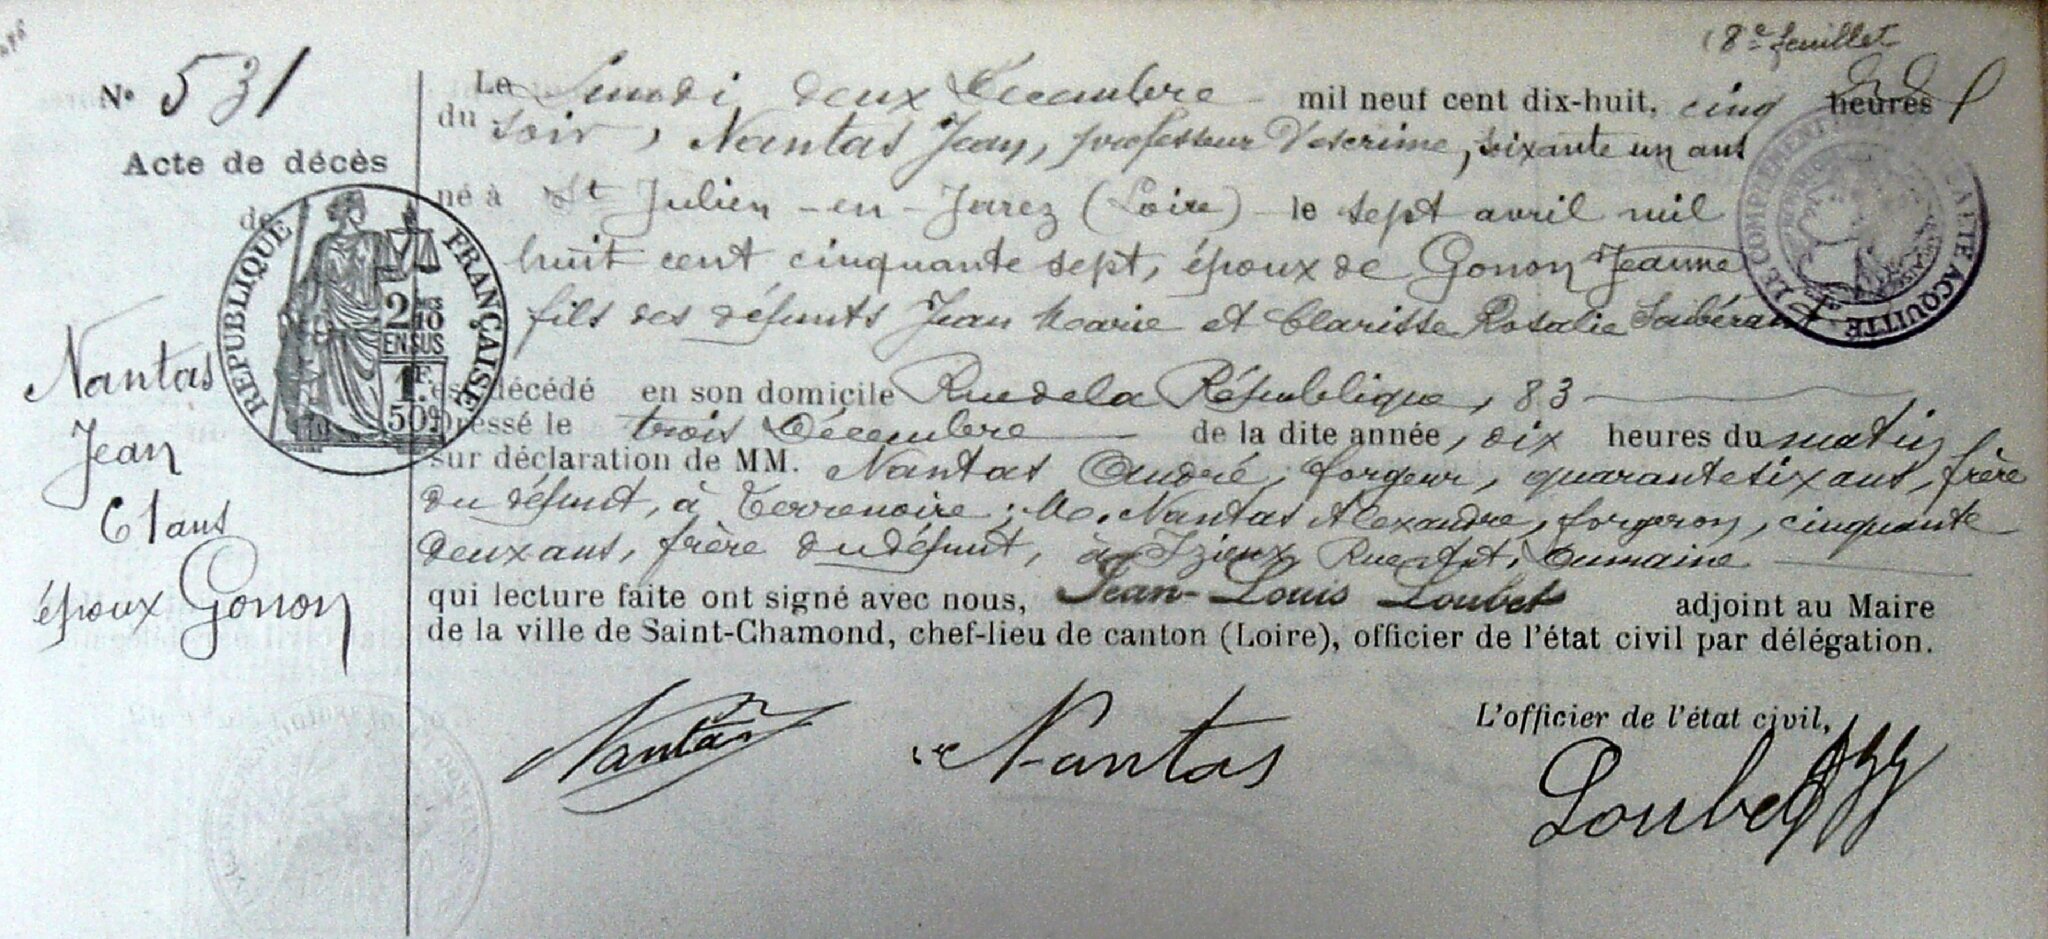 8e feuillet
No 531
Acte de décès
de
Nantas
Jean
61 ans
époux Gonon
Le Lundi deux Décembre mil neuf cent dix-huit, cinq heures
du soir, Nantas Jean, professeur d'escrime, soixante un ans
né à St Julien-en-Jarez (Loire) le sept avril mil
huit cent cinquante sept, époux de Gonon Jeanne
fils des défunts Jean Marie et Clarisse Rosalie Soubéran
est décédé en son domicile Rue de la République, 83
Dressé le trois Décembre de la dite année, dix heures du matin
sur déclaration de MM. Nantas André, forgeur, quarante six ans, frère
du défunt, à Terrenoire; Me. Nantas Alexandre, forgeron, cinquante
deux ans, frère du défunt, à Izieux, Rue Ant. Dumaine
qui lecture faite ont signé avec nous, Jean-Louis Loubet adjoint au Maire
de la ville de Saint-Chamond, chef-lieu de canton (Loire), officier de l'état civil par délégation.
L'officier de l'état civil,
Nantas Nantas Loubet
RÉPUBLIQUE FRANÇAISE
2 MES
10
EN SUS
1F.
50c
LE COMPLÉMENT ACQUITTÉ